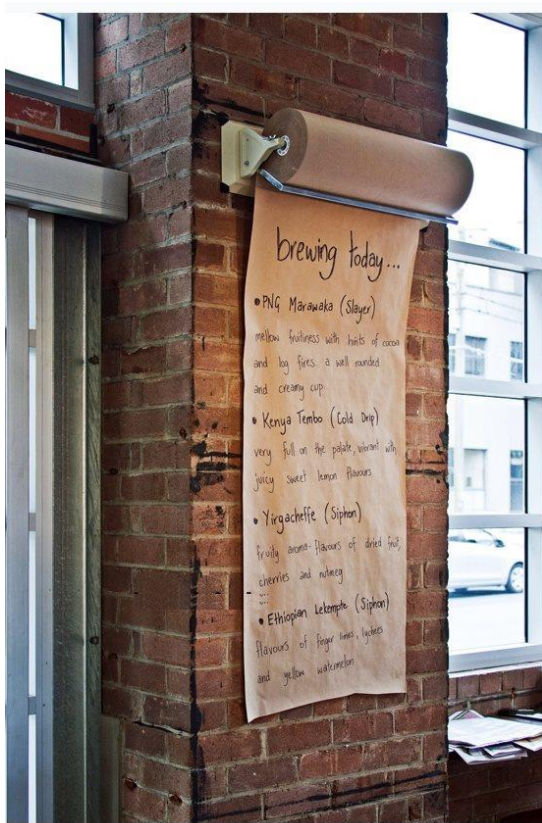 brewing today...
• PNG Marawaka (Slayer)
mellow fruitiness with hints of cocoa
and log fires. a well rounded
and creamy cup.
• Kenya Tembo (Cold Drip)
very full on the palate, vibrant with
juicy sweet lemon flavours
• Yirgacheffe (Siphon)
fruity aroma - flavours of dried fruit,
cherries and nutmeg
• Ethiopian Lekempte (Siphon)
flavours of finger limes, lychees
and yellow watermelon